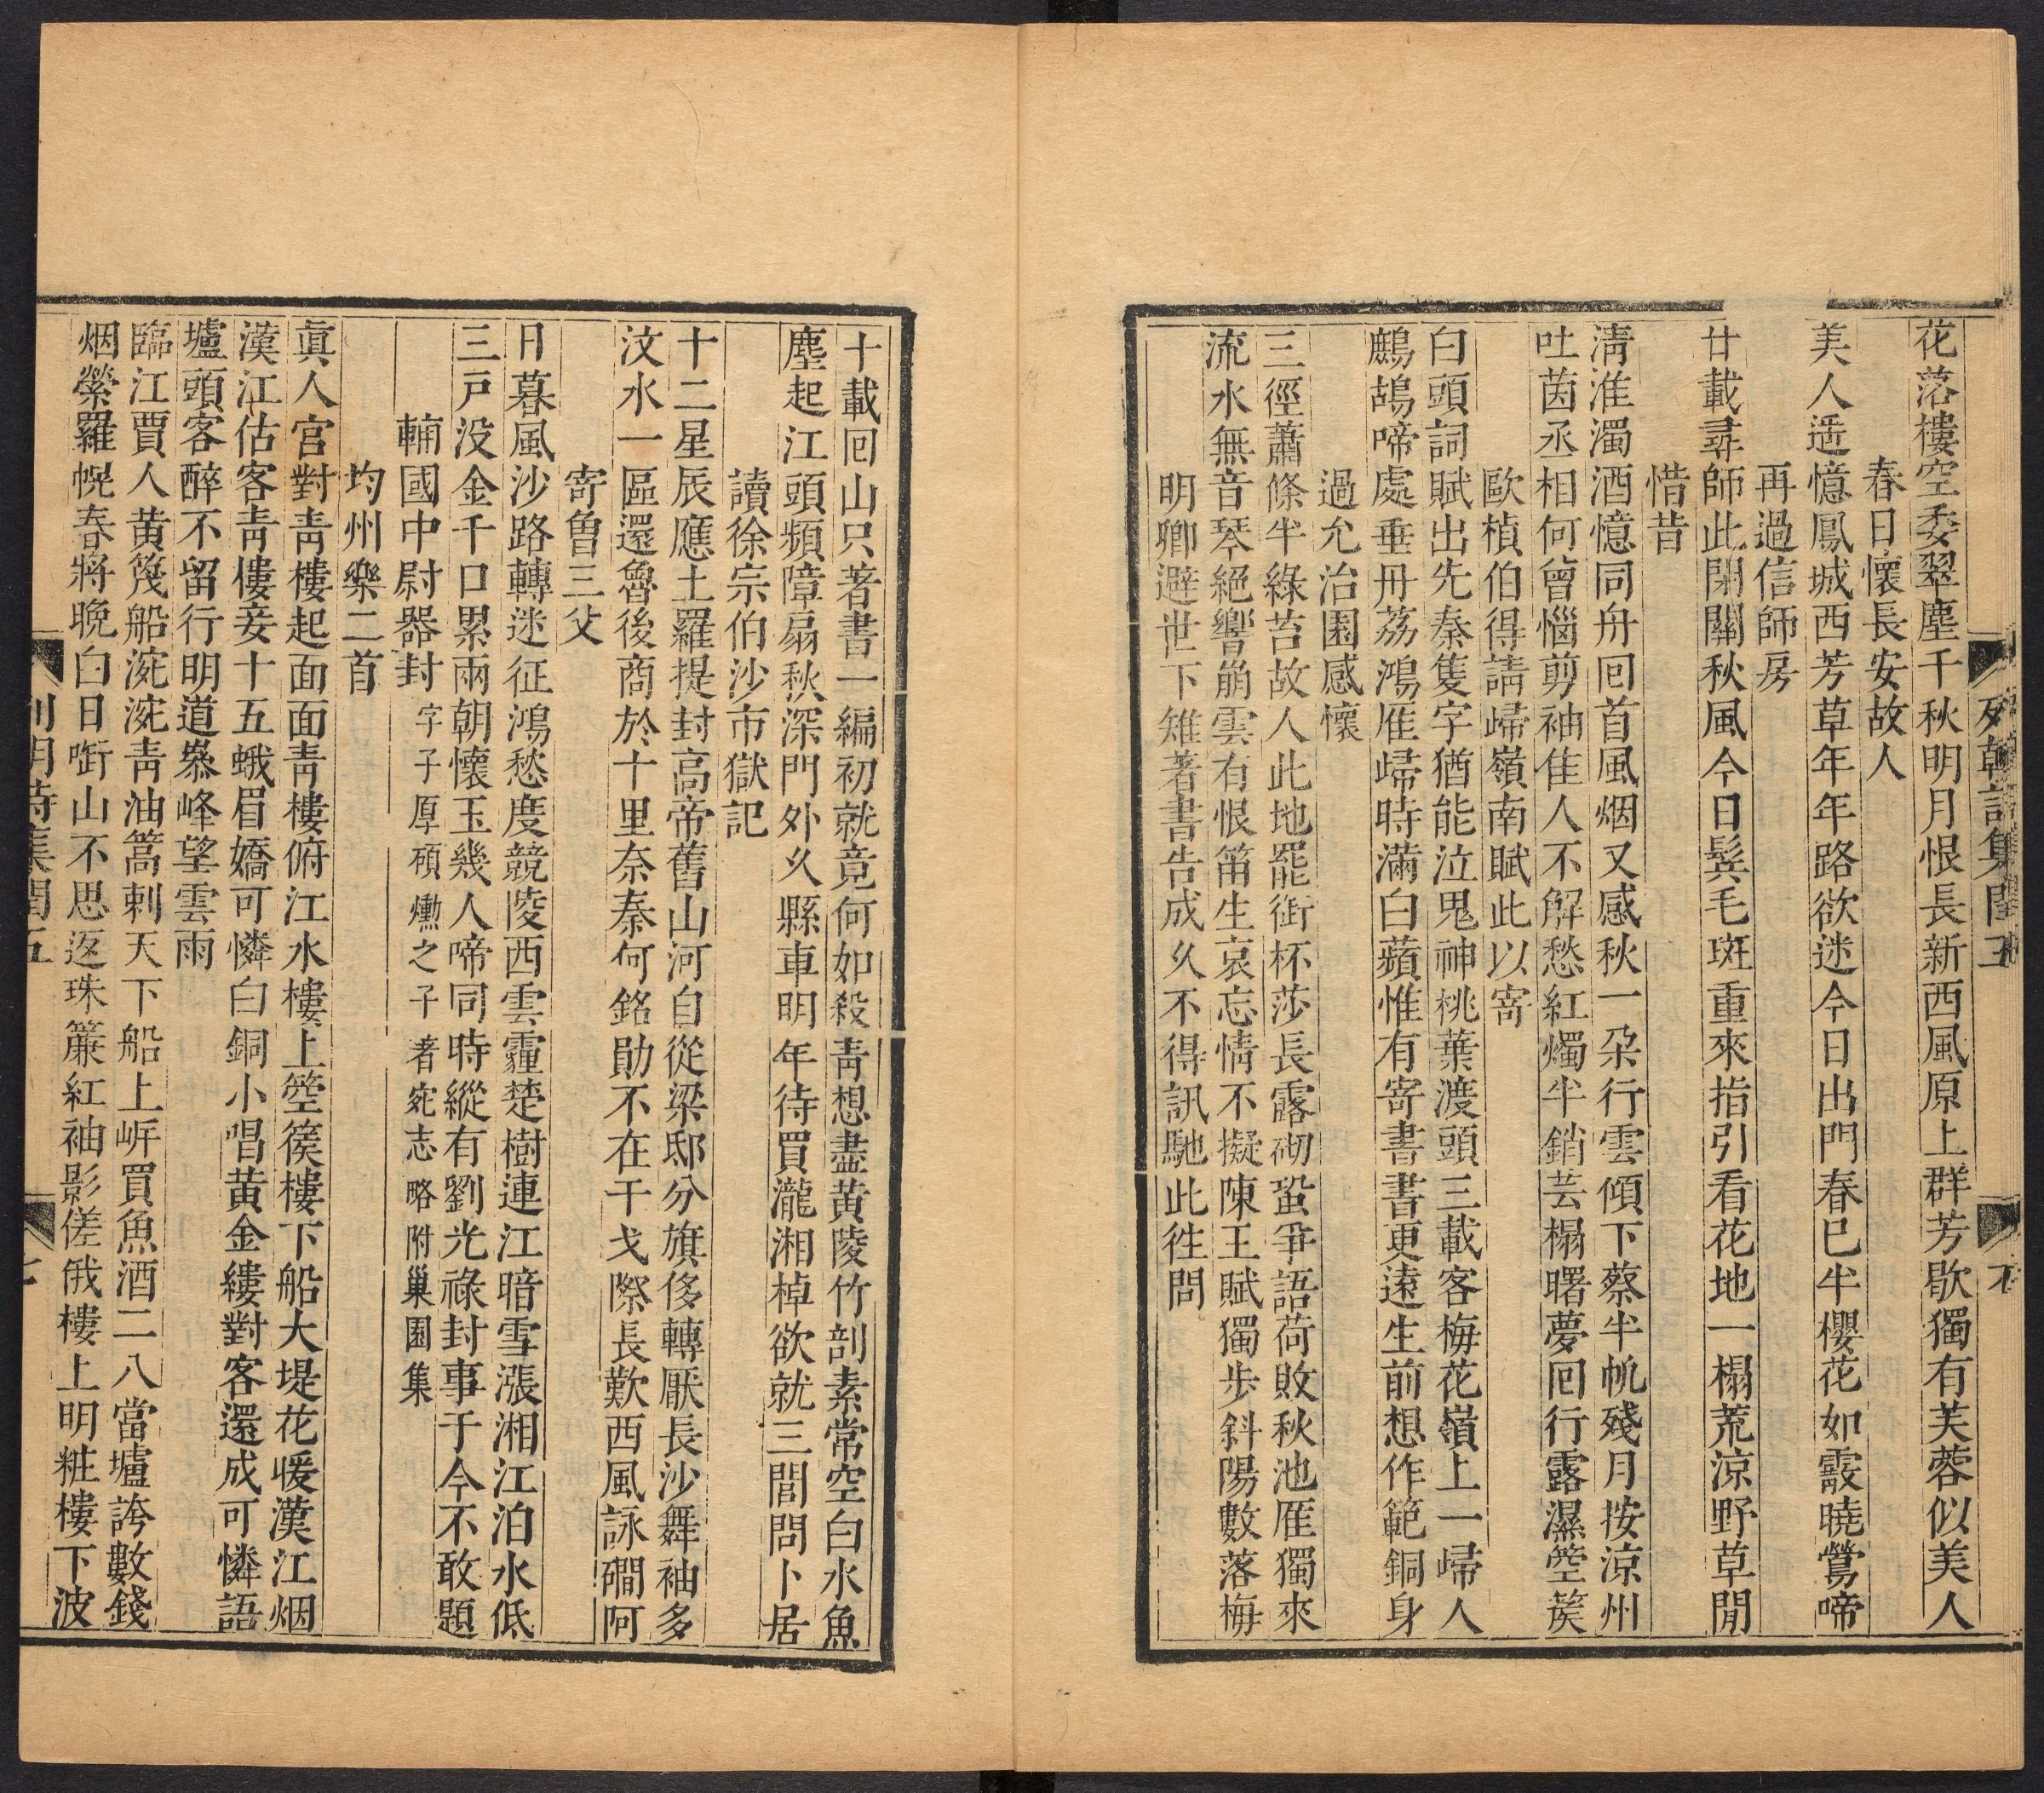 花落樓空委翠塵千秋明月恨長新西風原上群芳歇獨有芙蓉似美人
春日懷長安故人
美人遥憶鳳城西芳草年年路欲迷今日出門春已半櫻花如霰曉鶯啼
再過信師房
廿載尋師此閉關秋風今日鬂毛斑重來指引看花地一榻荒涼野草閒
惜昔
淸淮濁酒憶同舟回首風烟又感秋一朶行雲傾下蔡半帆殘月按涼州
吐茵丞相何曾惱剪袖佳人不解愁紅燭半銷芸榻曙夢回行露濕箜篌
歐楨伯得請歸嶺南賦此以寄
白頭詞賦出先秦隻字猶能泣鬼神桃葉渡頭三載客梅花嶺上一歸人
鷓鴣啼處垂丹荔鴻雁歸時滿白蘋惟有寄書書更遠生前想作範銅身
過允治園感懷
三徑蕭條半綠苔故人此地罷銜杯莎長露砌蛩爭語荷敗秋池雁獨來
流水無音琴絕響崩雲有恨笛生哀忘情不擬陳王賦獨步斜陽數落梅
明卿避世下雉著書告成久不得訊馳此徃問
十載回山只著書一編初就竟何如殺靑想盡黃陵竹剖素常空白水魚
塵起江頭頻障扇秋深門外久縣車明年待買瀧湘棹欲就三閭問卜居
讀徐宗伯沙市獄記
十二星辰應土羅提封高帝舊山河自從梁邸分旗侈轉厭長沙舞袖多
汶水一區還魯後商於十里奈秦何銘勛不在干戈際長歎西風詠磵阿
寄魯三父
日暮風沙路轉迷征鴻愁度競陵西雲霾楚樹連江暗雪漲湘江泊水低
三戸没金千口累兩朝懷玉幾人啼同時縱有劉光祿封事于今不敢題
輔國中尉器封 字子厚碩爋之子者兖志略附巢園集
均州樂二首
眞人宮對靑樓起面面靑樓俯江水樓上箜篌樓下船大堤花煖漢江烟
漢江估客靑樓妾十五蛾眉嬌可憐白銅小唱黃金縷對客還成可憐語
壚頭客醉不留行明道叅峰望雲雨
臨江賈人黃篾船浣浣靑油篙刺天下船上岍買魚酒二八當壚誇數錢
烟縈羅幌春將晩白日啣山不思返珠簾紅袖影傞俄樓上明粧樓下波